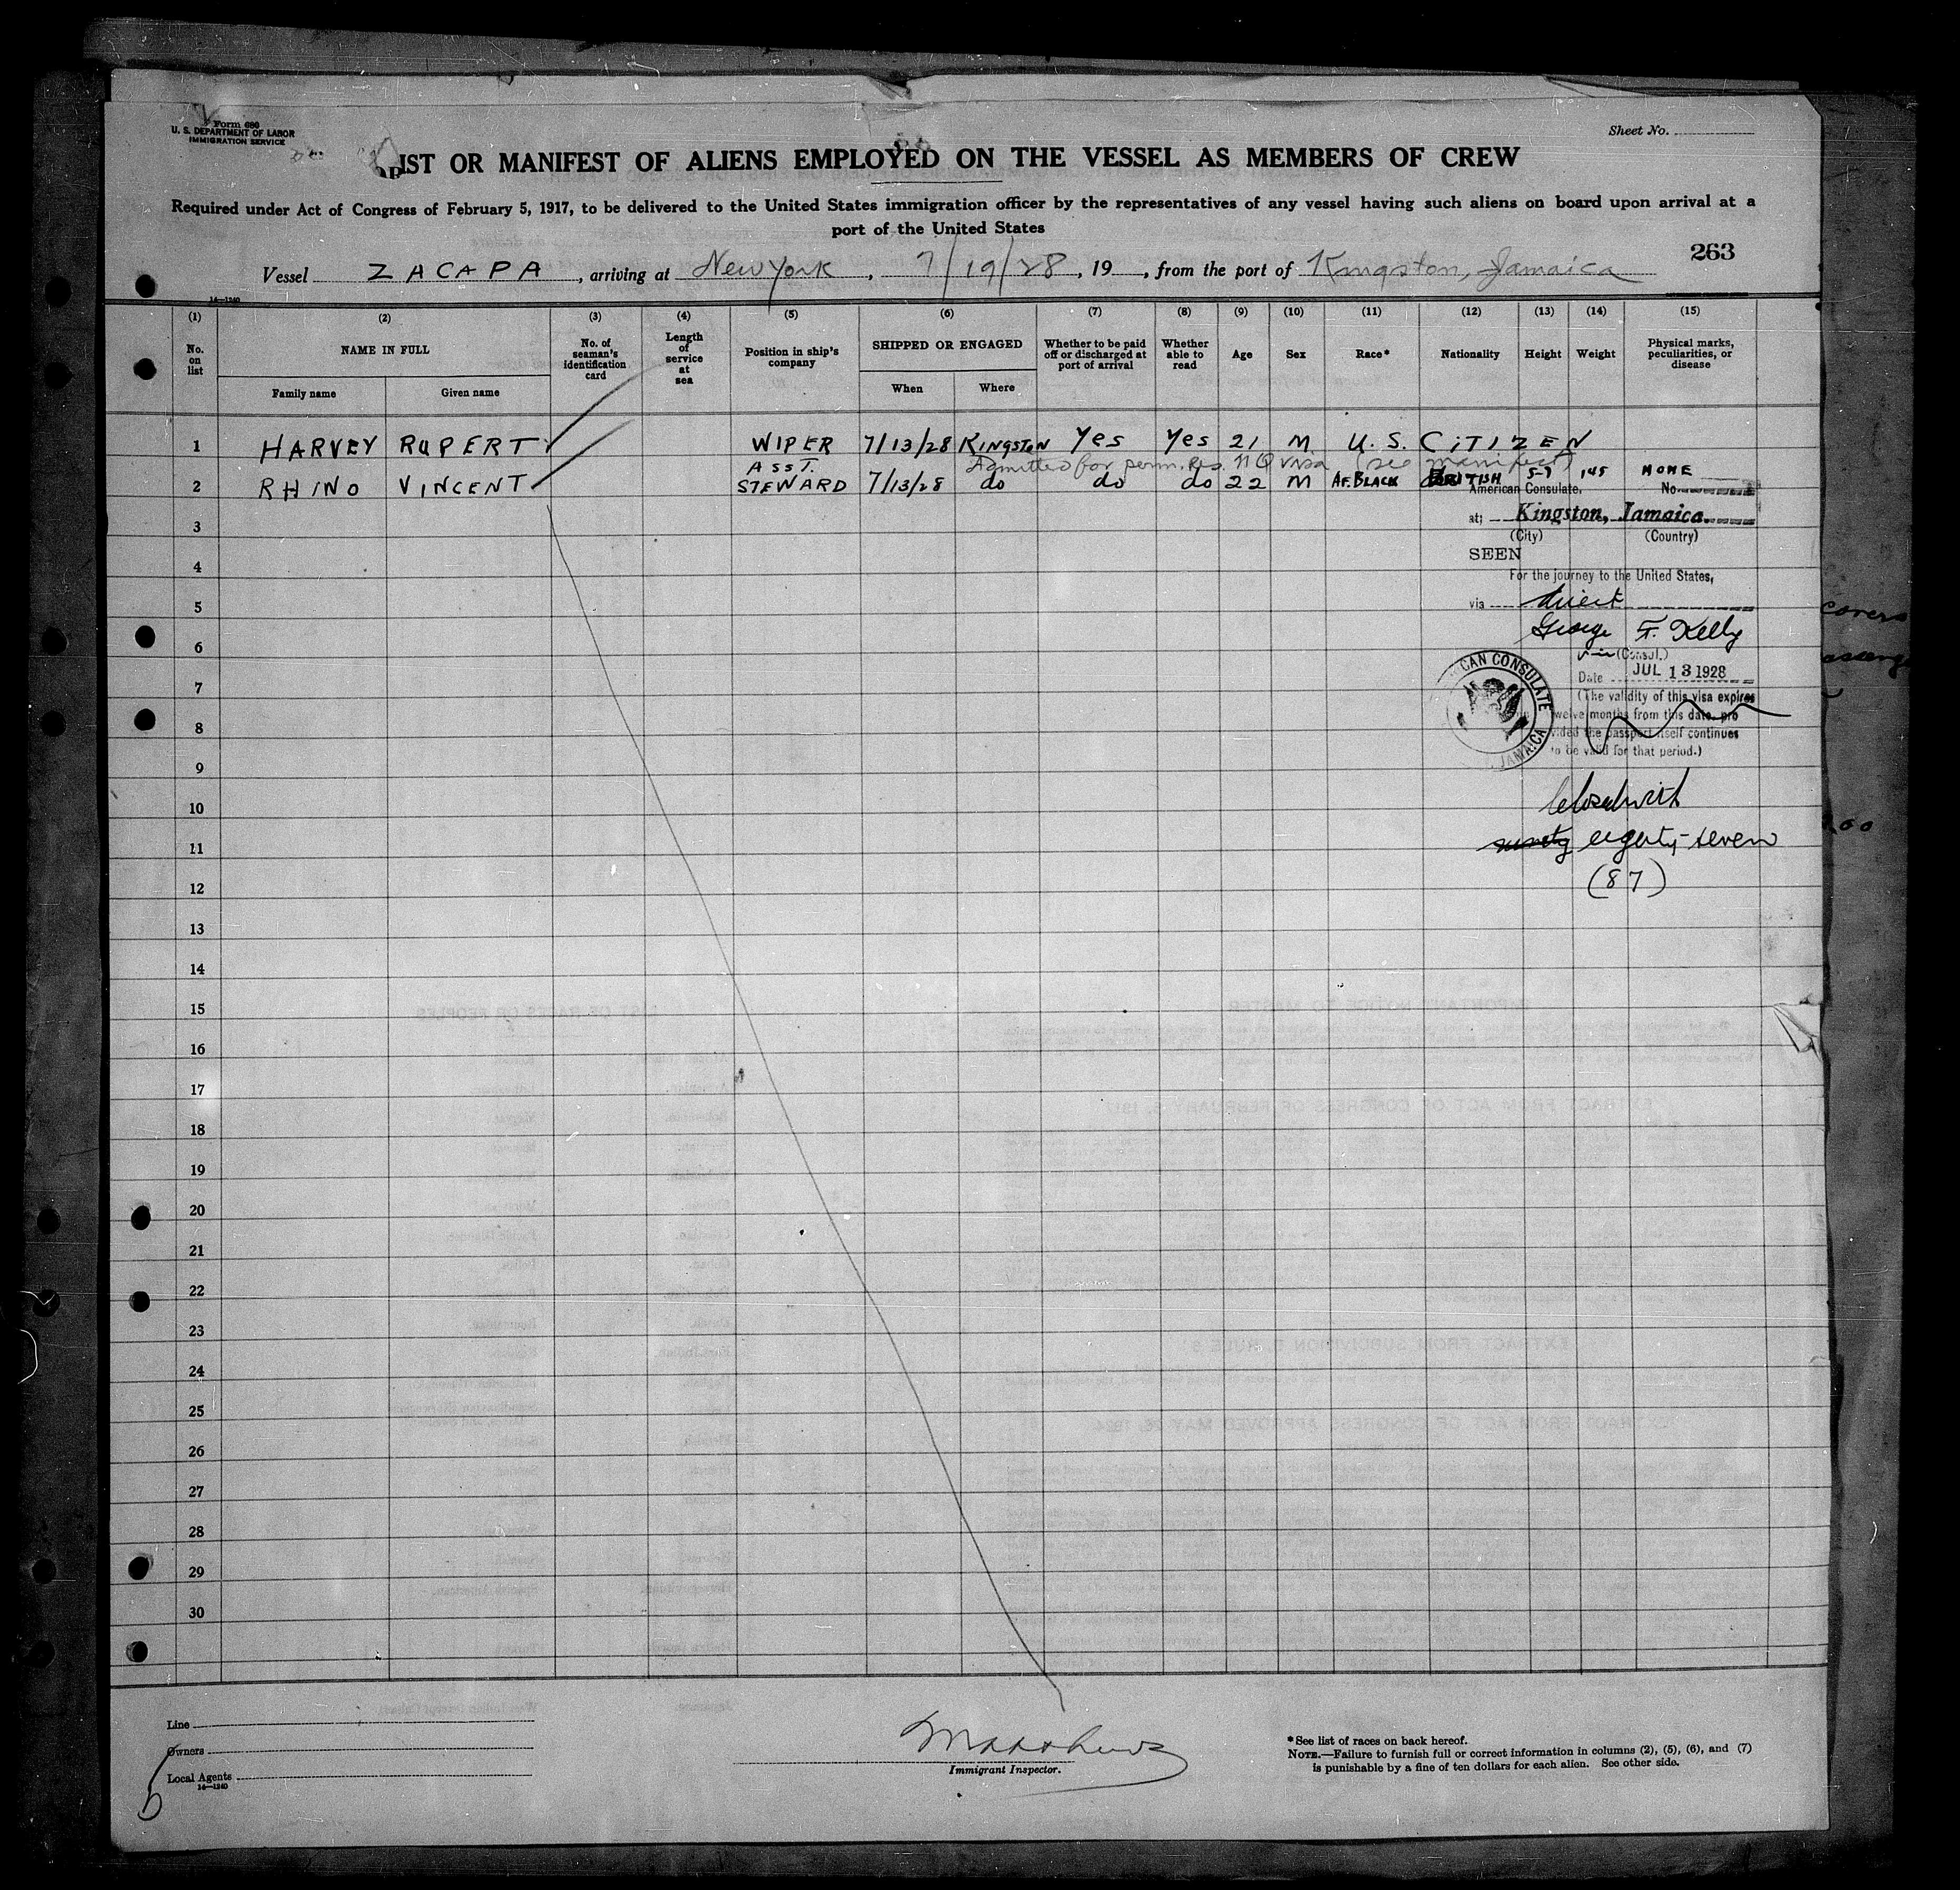 Form 680
U. S. DEPARTMENT OF LABOR
IMMIGRATION SERVICE
Sheet No.
IST OR MANIFEST OF ALIENS EMPLOYED ON THE VESSEL AS MEMBERS OF CREW
Required under Act of Congress of February 5, 1917, to be delivered to the United States immigration officer by the representatives of any vessel having such aliens on board upon arrival at a
port of the United States
263
Vessel ZACAPA, arriving at New York, 7/19/28, 19 , from the port of Kingston, Jamaica
14—1240
(1) (2) (3) (4) (5) (6) (7) (8) (9) (10) (11) (12) (13) (14) (15)
No. on list
NAME IN FULL
Family name
Given name
No. of seaman's identification card
Length of service at sea
Position in ship's company
SHIPPED OR ENGAGED
When
Where
Whether to be paid off or discharged at port of arrival
Whether able to read
Age
Sex
Race*
Nationality
Height
Weight
Physical marks, peculiarities, or disease
1 HARVEY RUPERT WIPER 7/13/28 KINGSTON Yes Yes 21 M U. S. CITIZEN
Admitted for perm. res. N Q visa (see manifest)
2 RHINO VINCENT ASST. STEWARD 7/13/28 do do do 22 M AF. BLACK BRITISH 5-7 145 NONE
American Consulate, No.
3
at; Kingston, Jamaica.
(City) (Country)
4
SEEN
For the journey to the United States,
5
via direct
6
George F. Kelly
(Consul.)
7
Date JUL 13 1928
(The validity of this visa expires
8
twelve months from this date, pro
vided the passport itself continues
to be valid for that period.)
CAN CONSULATE
JAMAICA
9
10
11
ninety eighty-seven
12
(87)
13
14
15
16
17
18
19
20
21
22
23
24
25
26
27
28
29
30
Line
Owners
Local Agents
14—1240
Immigrant Inspector.
*See list of races on back hereof.
NOTE.—Failure to furnish full or correct information in columns (2), (5), (6), and (7)
is punishable by a fine of ten dollars for each alien. See other side.